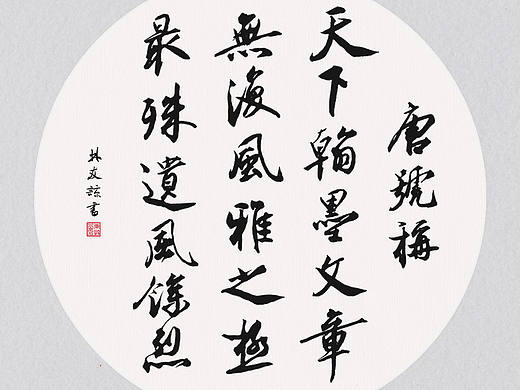 唐號稱
天下翰墨文章
無復風雅之極
最殊遺風餘烈
林友書